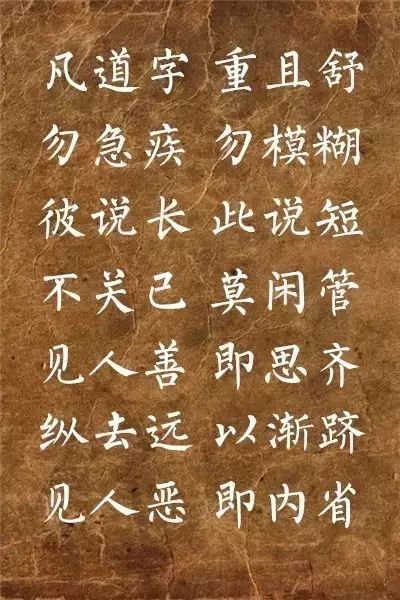 凡道字 重且舒
勿急疾 勿模糊
彼说长 此说短
不关己 莫闲管
见人善 即思齐
纵去远 以渐跻
见人恶 即内省